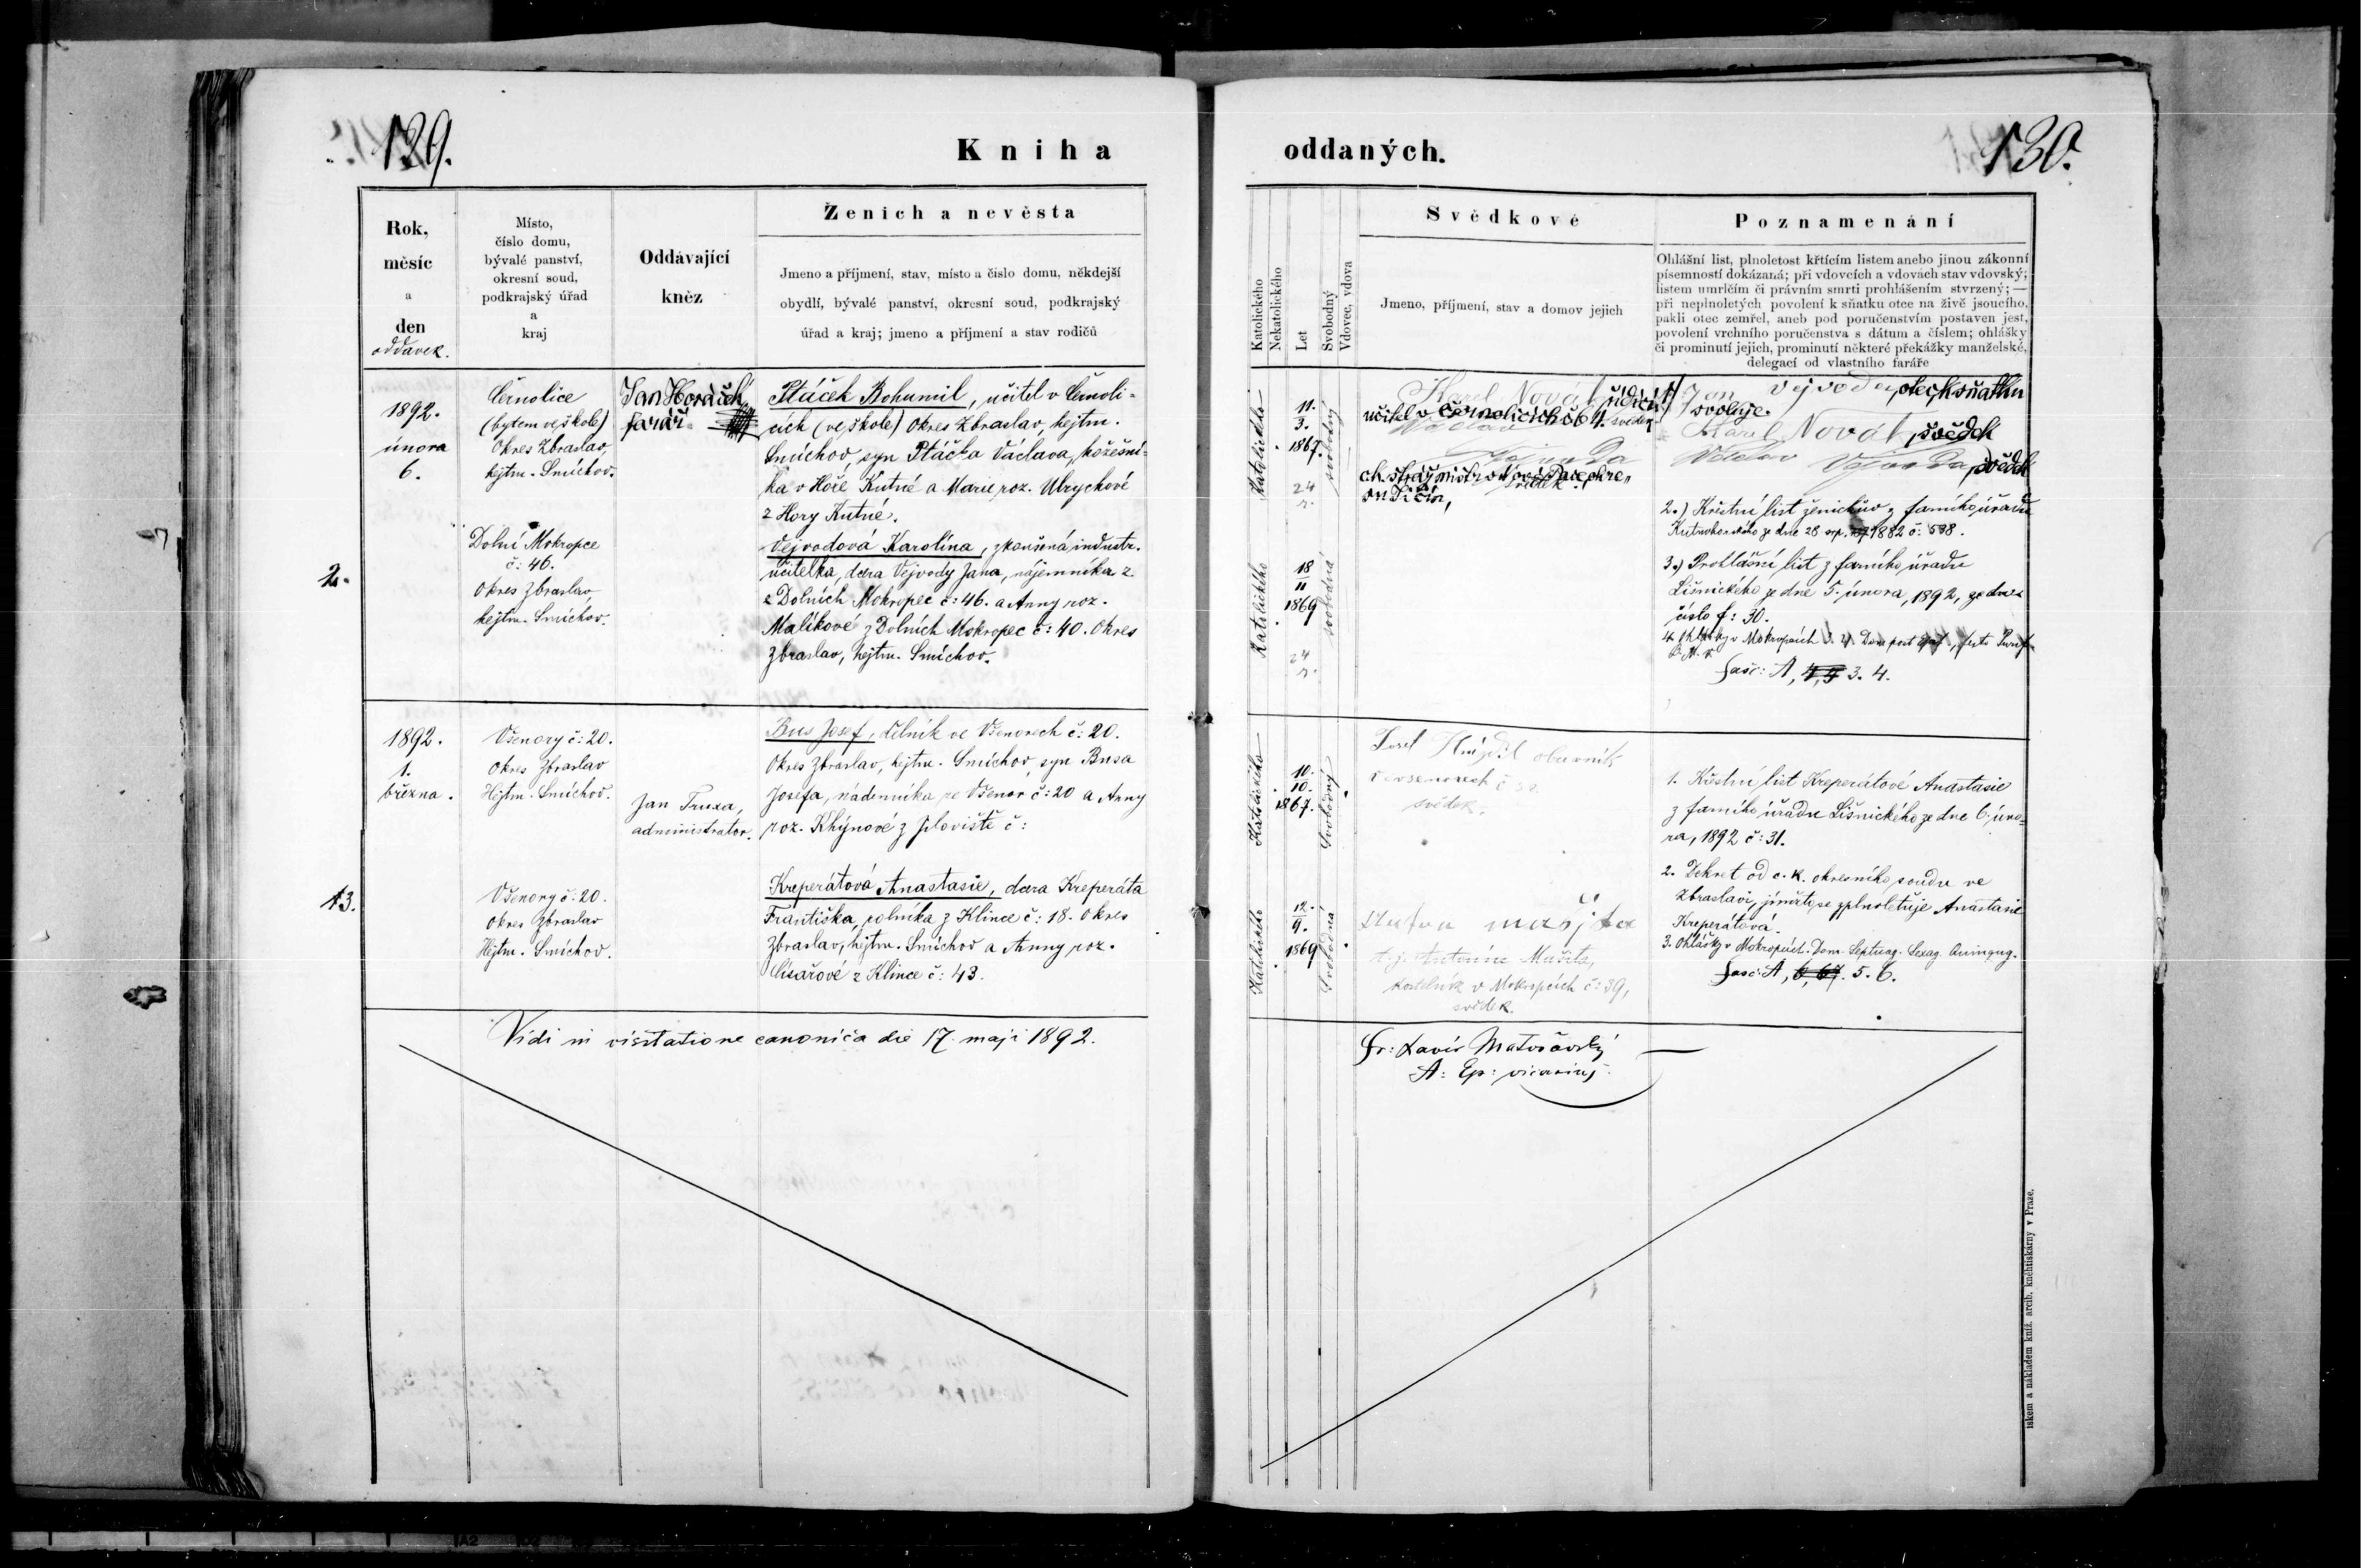 129.
Kniha
Rok,
měsíc
a
den
oddavek.
Místo,
číslo domu,
bývalé panství,
okresní soud,
podkrajský úřad
a
kraj
Oddávající
kněz
Ženich a nevěsta
Jmeno a příjmení, stav, místo a číslo domu, někdejší
obydlí, bývalé panství, okresní soud, podkrajský
úřad a kraj; jmeno a příjmení a stav rodičů
1892.
února
6.
2.
Černolice
(bytem ve škole)
Okres Zbraslav,
hejtm. Smíchov.
Dolní Mokropce
č: 46.
Okres Zbraslav,
hejtm. Smíchov.
Jan Horáček
farář
Ptáček Bohumil, učitel v Černoli-
cích (ve škole) Okres Zbraslav, hejtm.
Smíchov, syn Ptáčka Václava, kožešní-
ka v Hoře Kutné a Marie roz. Ulrychové
z Hory Kutné.
Vejvodová Karolína, zkoušená industr.
učitelka, dcera Vejvody Jana, nájemníka z
z Dolních Mokropec č: 46. a Anny roz.
Malíkové z Dolních Mokropec č: 40. Okres
Zbraslav, hejtm. Smíchov.
1892.
1.
března.
13.
Všenory č: 20.
Okres Zbraslav
Hejtm. Smíchov.
Všenory č: 20.
Okres Zbraslav
Hejtm. Smíchov.
Jan Truxa,
administrator.
Bus Josef, dělník ve Všenorech č: 20.
Okres Zbraslav, hejtm. Smíchov, syn Busa
Josefa, nádenníka ze Všenor č: 20 a Anny
roz. Khýnové z Jíloviště č:
Kreperátová Anastasie, dcera Kreperáta
Františka, rolníka z Klince č: 18. Okres
Zbraslav, hejtm. Smíchov a Anny roz.
Císařové z Klince č: 43.
Vidi in visitatione canonica die 17. maji 1892.
oddaných.
130.
Katolického
Nekatolického
Let
Svobodný
Vdovec, vdova
Svědkové
Jmeno, příjmení, stav a domov jejich
Poznamenání
Ohlášní list, plnoletost křtícím listem anebo jinou zákonní
písemností dokázaná; při vdovcích a vdovách stav vdovský;
listem umrlčím či právním smrti prohlášením stvrzený; —
při neplnoletých povolení k sňatku otce na živě jsoucího,
pakli otec zemřel, aneb pod poručenstvím postaven jest,
povolení vrchního poručenstva s dátum a číslem; ohlášky
či prominutí jejich, prominutí některé překážky manželské,
delegací od vlastního faráře
Katolického
11.
3.
1867.
24
r.
svobodný
Katolického
18
11
1869
24
r.
svobodná
Karel Novák řídící
učitel v Černolicích č 64. svědek
Václav
Vejvoda
svědek
Jan Vejvoda, otec, k sňatku
svoluje.
Karel Novák, svědek
Václav Vejvoda, svědek
2.) Křestní list ženichův z farního úřadu
Kutnohorského ze dne 28 srp. 1882 č: 538.
3.) Prohlášní list z farního úřadu
Líšnického ze dne 5. února, 1892, ze dne
číslo f: 30.
Fasc: A, 3. 4.
Katolického
10.
10.
1867.
Svobodný
Katolického
12.
9.
1869
Svobodná
Josef obuvník
svědek.
t. j. Antonín Mašita,
kostelník v Mokropcích č: 39,
svědek.
1. Křestní list Kreperátové Anastasie
z farního úřadu Líšnického ze dne 6. úno-
ra, 1892 č: 31.
2. Dekret od c. k. okresního soudu ve
Zbraslavi, jímžto se zplnoletňuje Anastasie
Kreperátová.
3. Ohlášky v Mokropcích. Dom. Septuag. Sexag. Quinqug.
Fasc: A, 5. 6.
A: Ep: vicarius
tiskem a nákladem kníž. arcib. kněhtiskárny v Praze.